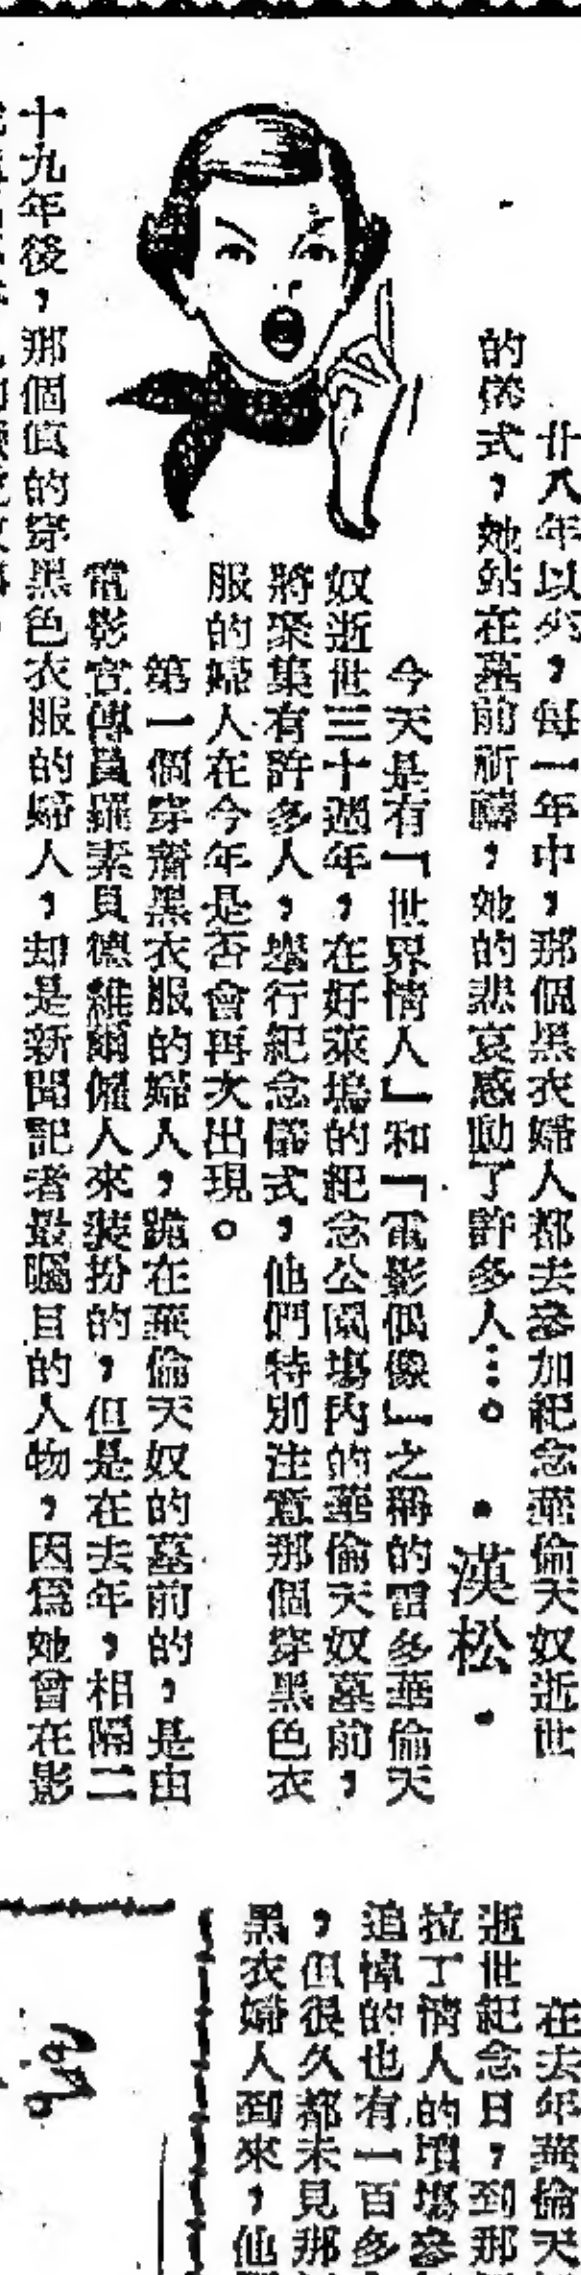 廿八年以來，每一年中，那個黑衣婦人都去參加紀念華倫天奴逝世
的儀式，她站在墓前祈禱，她的悲哀感動了許多人…。
•漢松•
今天是有「世界情人」和「電影偶像」之稱的雷多華倫天
奴逝世三十週年，在好萊塢的紀念公園塲內的華倫天奴墓前，
將聚集有許多人，舉行紀念儀式，他們特別注意那個穿黑色衣
服的婦人在今年是否會再次出現。
第一個穿着黑衣服的婦人，跪在華倫天奴的墓前的，是由
電影宣傳員羅素貝德維爾僱人來裝扮的，但是在去年，相隔二
十九年後，那個真的穿黑色衣服的婦人，却是新聞記者最矚目的人物，因爲她曾在影
在去年華倫天
逝世紀念日，到那
拉丁情人的墳塲參
追悼的也有一百多
，但很久都未見那
黑衣婦人到來，他